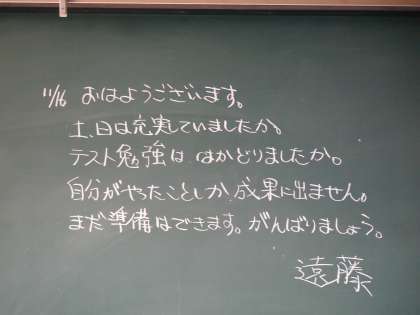 11/16 おはようございます。
土、日は充実していましたか。
テスト勉強は はかどりましたか。
自分がやったことしか、成果に出ません。
まだ準備はできます。がんばりましょう。
遠藤